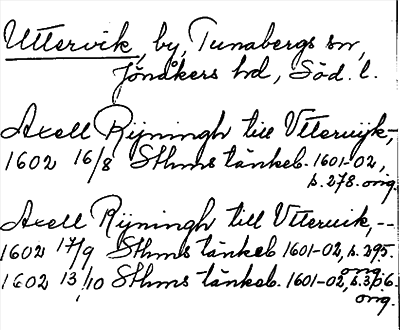 Uttervik, by, Tunabergs sn,
Jönåkers hd, Söd. l.
Axell Rijningh till Vtteruijk,
1602 16/8 Sthms tänkeb. 1601-02,
s. 278. orig.
Axell Rijningh till Vtteruik, --
1602 17/9 Sthms tänkeb 1601-02, s. 295.
orig.
1602 13/10 Sthms tänkeb. 1601-02, s. 316.
orig.